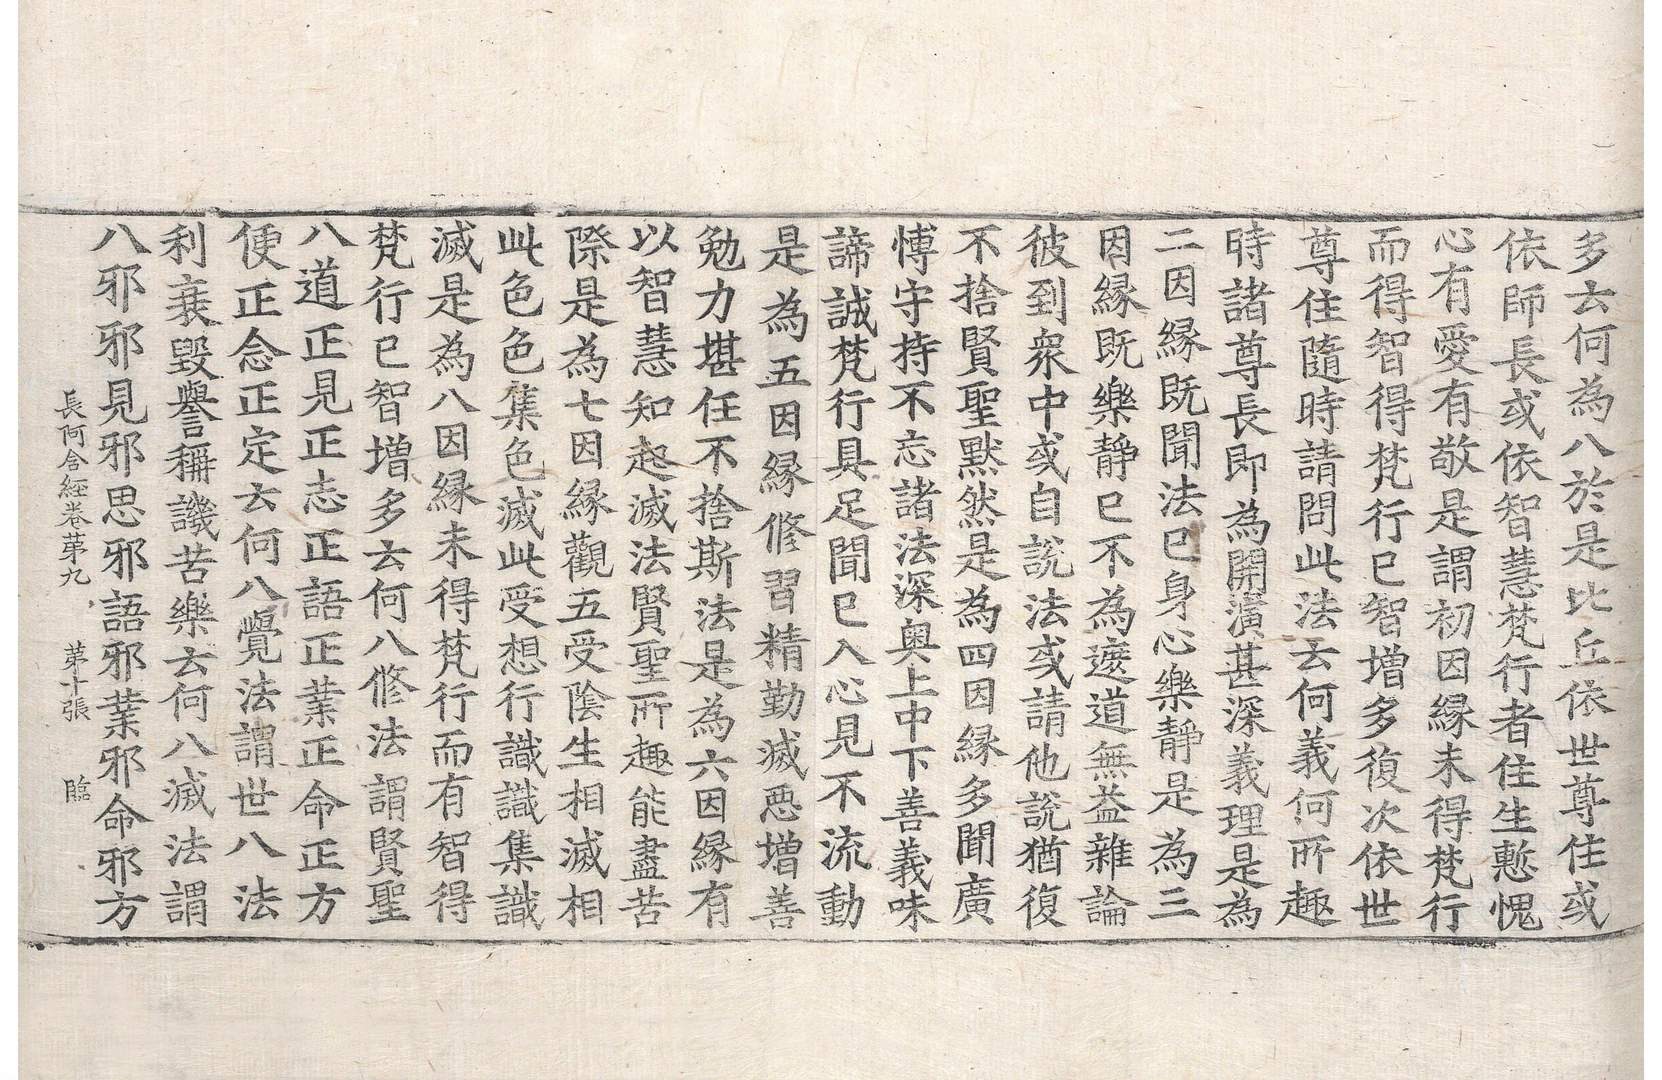 多云何為八於是比丘依世尊住或
依師長或依智慧梵行者住生慙愧
心有愛有敬是謂初因縁未得梵行
而得智得梵行已智增多復次依世
尊住隨時請問此法云何義何所趣
時諸尊長即為開演甚深義理是為
二因縁既聞法已身心樂靜是為三
因縁既樂靜已不為遮道無益雜論
彼到衆中或自說法或請他說猶復
不捨賢聖默然是為四因縁多聞廣
愽守持不忘諸法深奥上中下善義味
諦誠梵行具足聞已入心見不流動
是為五因縁修習精勤滅惡增善
勉力堪任不捨斯法是為六因縁有
以智慧知起滅法賢聖所趣能盡苦
際是為七因縁觀五受陰生相滅相
此色色集色滅此受想行識識集識
滅是為八因縁未得梵行而有智得
梵行已智增多云何八修法謂賢聖
八道正見正志正語正業正命正方
便正念正定云何八覺法謂世八法
利衰毀譽稱譏苦樂云何八滅法謂
八邪邪見邪思邪語邪業邪命邪方
長阿含經卷苐九　苐十張　臨